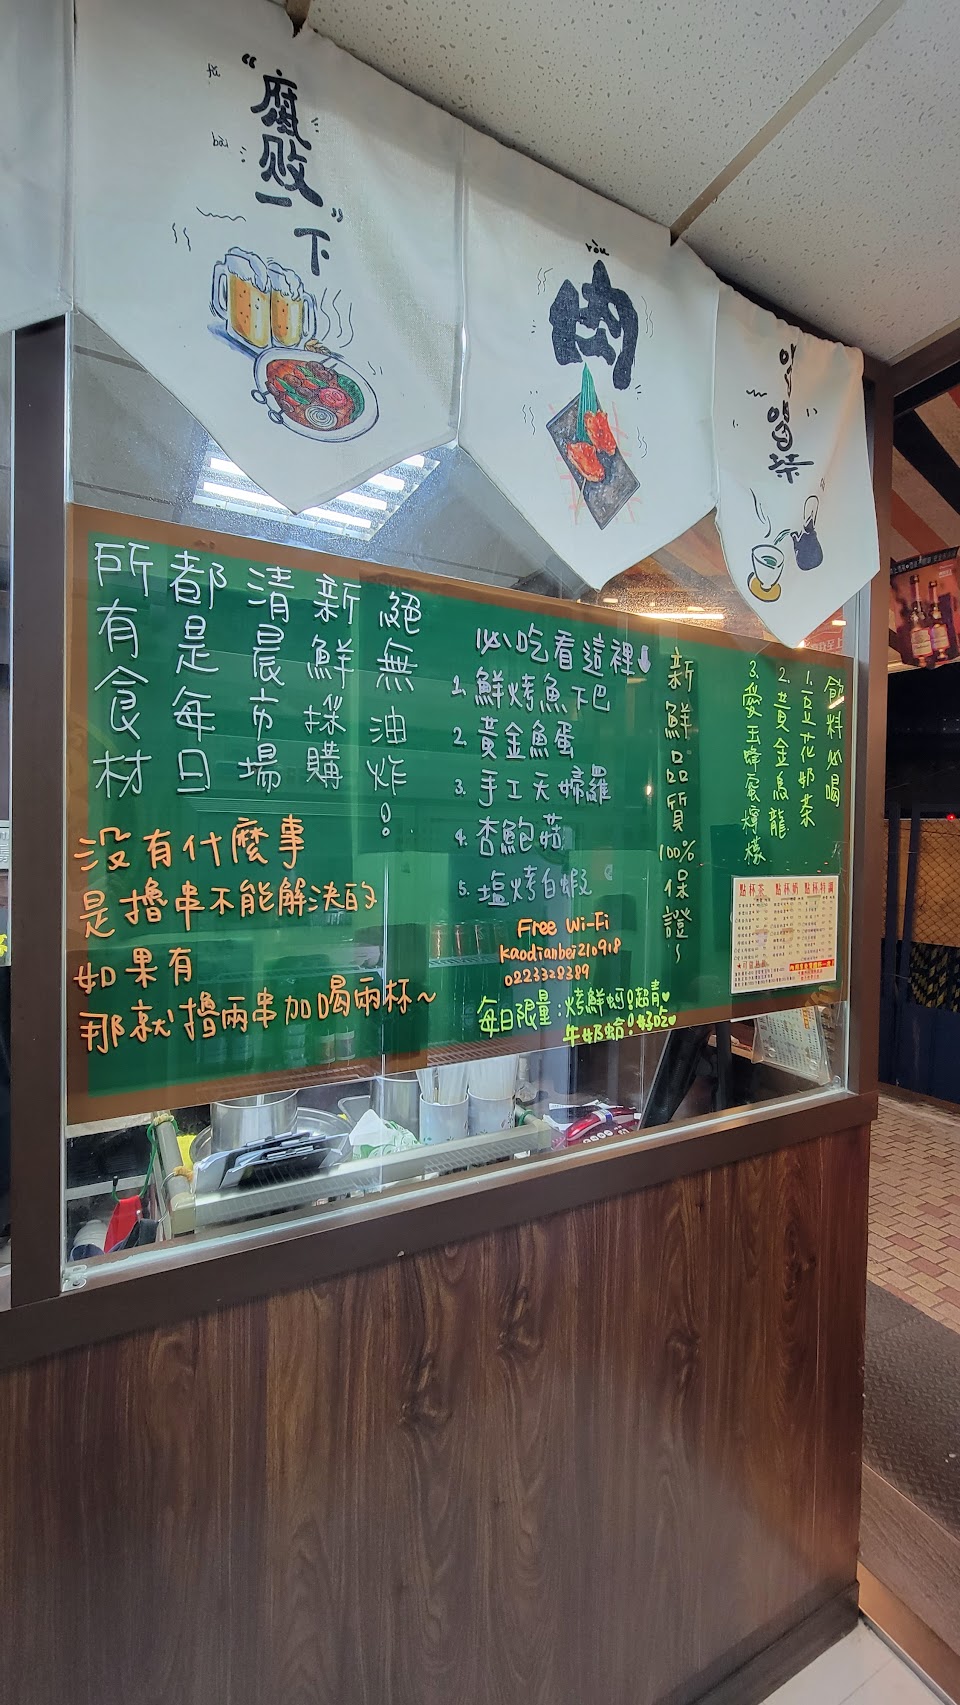 fǔ
bài
“腐败一”下
ròu
肉
喝喝茶
所有食材
都是每日
清晨市場
新鮮採購
絕無油炸!
沒有什麼事
是擼串不能解決的
如果有
那就擼兩串加喝兩杯~
必吃看這裡⬇
1. 鮮烤魚下巴
2. 黃金魚蛋
3. 手工天婦羅
4. 杏鮑菇
5. 塩烤白蝦
Free Wi-Fi
kaodianbei210918
0223328389
每日限量:烤鮮蚵!超青♥
牛奶蛤!好吃♥
新鮮品質100%保證~
飲料必喝
1. 豆花奶茶
2. 黃金烏龍
3. 愛玉蜂蜜檸檬
點杯茶 點杯奶 點杯特調